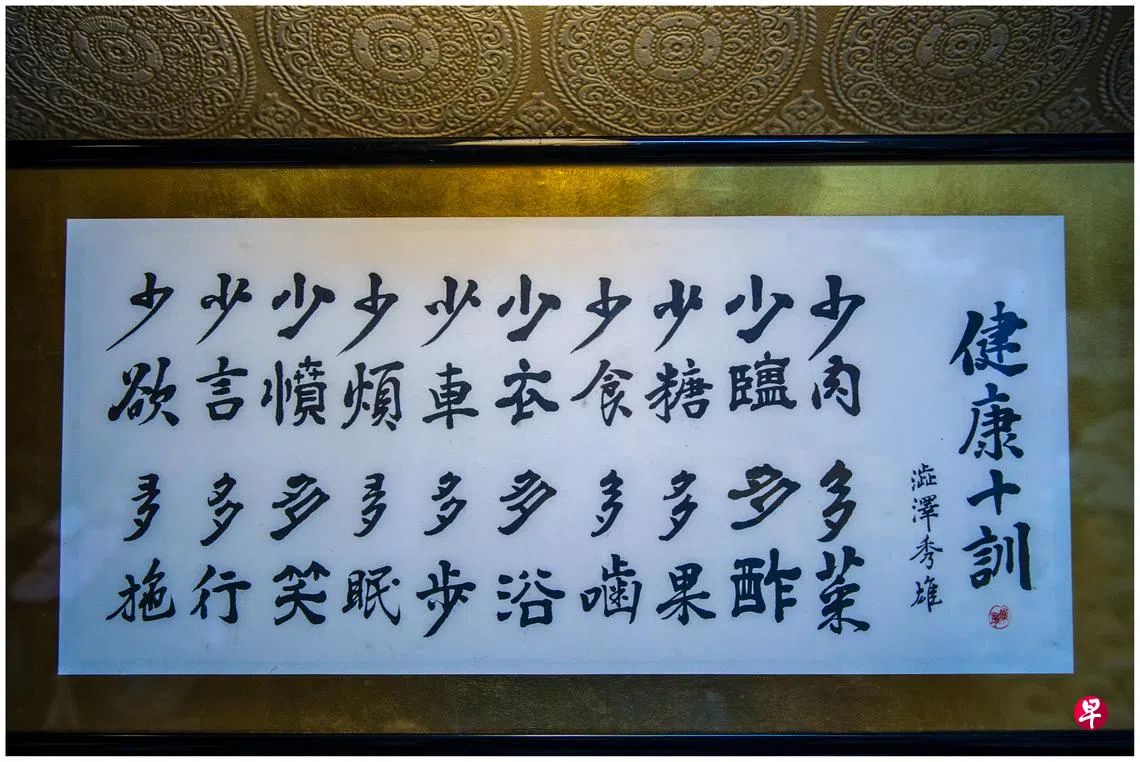 健康十訓
澁澤秀雄
少肉多菜
少鹽多酢
少糖多果
少食多噛
少衣多浴
少車多歩
少煩多眠
少憤多笑
少言多行
少欲多施
早